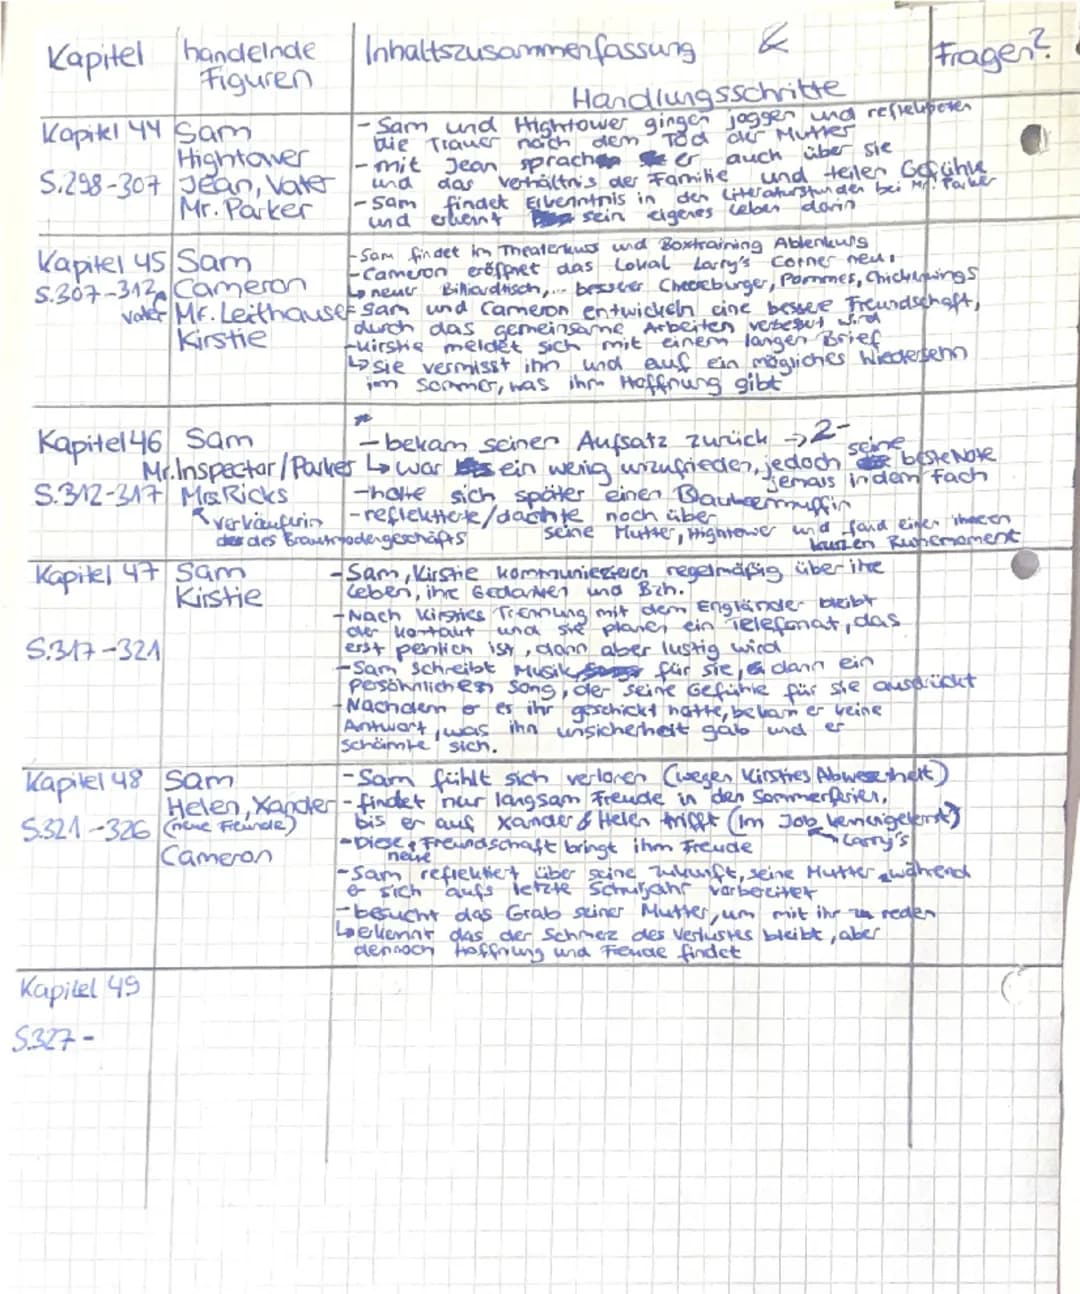 Kapitel handelnde Figuren Inhaltszusammenfassung & Handlungsschritte Fragen?
Kapitel 44
S.298-307
Sam
Hightower
Jean, Vater
Mr. Parker
- Sam und Hightower gingen joggen und reflektieren
die Trauer nach dem Tod der Mutter
- mit Jean sprach er auch über sie
und das Verhältnis der Familie und teilen Gefühle
- Sam findet Erkenntnis in den Literaturstunden bei Mr. Parker
und erkennt sein eigenes Leben darin
Kapitel 45
S.307-312
Sam
Cameron
Vater Mr. Leithause
Kirstie
- Sam findet im Theaterkurs und Boxtraining Ablenkung
- Cameron eröffnet das Lokal Larry's Corner neu.
↳ neuer Billiardtisch,... besserer Cheeseburger, Pommes, Chickenwings
- Sam und Cameron entwickeln eine bessere Freundschaft,
durch das gemeinsame Arbeiten verbessert wird
- Kirstie meldet sich mit einem langen Brief
↳ sie vermisst ihn und auf ein mögliches Wiedersehn
im Sommer, was ihm Hoffnung gibt
Kapitel 46
S.312-317
Sam
Mr.Inspector/Parker
Mrs.Ricks
↖ verkäuferin
des Brautmodengeschäfts
- bekam seinen Aufsatz zurück → 2-
↳ war ein wenig unzufrieden, jedoch seine beste Note
jemals in dem Fach
- holte sich später einen Blaubeermuffin
- reflektierte/dachte noch über
seine Mutter, Hightower und fand einen
kurzen Ruhemoment
Kapitel 47
S.317-321
Sam
Kirstie
- Sam, Kirstie kommunizieren regelmäßig über ihre
Leben, ihre Gedanken und Bzh.
- Nach Kirsties Trennung mit dem Engländer bleibt
der Kontakt und sie planen ein Telefonat, das
erst peinlich ist, dann aber lustig wird
- Sam schreibt Musik für sie, dann ein
persöhnlichen Song, der seine Gefühle für sie ausdrückt
- Nachdem er es ihr geschickt hatte, bekam er keine
Antwort, was ihn unsicherheit gab und er
schämte sich.
Kapitel 48
S.321-326
Sam
Helen, Xander
(neue Freunde)
Cameron
- Sam fühlt sich verloren (wegen Kirsties Abwesenheit)
- findet nur langsam Freude in den Sommerferien,
bis er auf Xander & Helen trifft (Im Job kennengelernt)
↖ Larry's
- Diese neue Freundschaft bringt ihm Freude
- Sam reflektiert über seine Zukunft, seine Mutter, während
er sich aufs letzte Schuljahr vorbereitet
- besucht das Grab seiner Mutter, um mit ihr zu reden
↳ erkennt das der Schmerz des Verlustes bleibt, aber
dennoch Hoffnung und Freude findet
Kapitel 49
S.327-